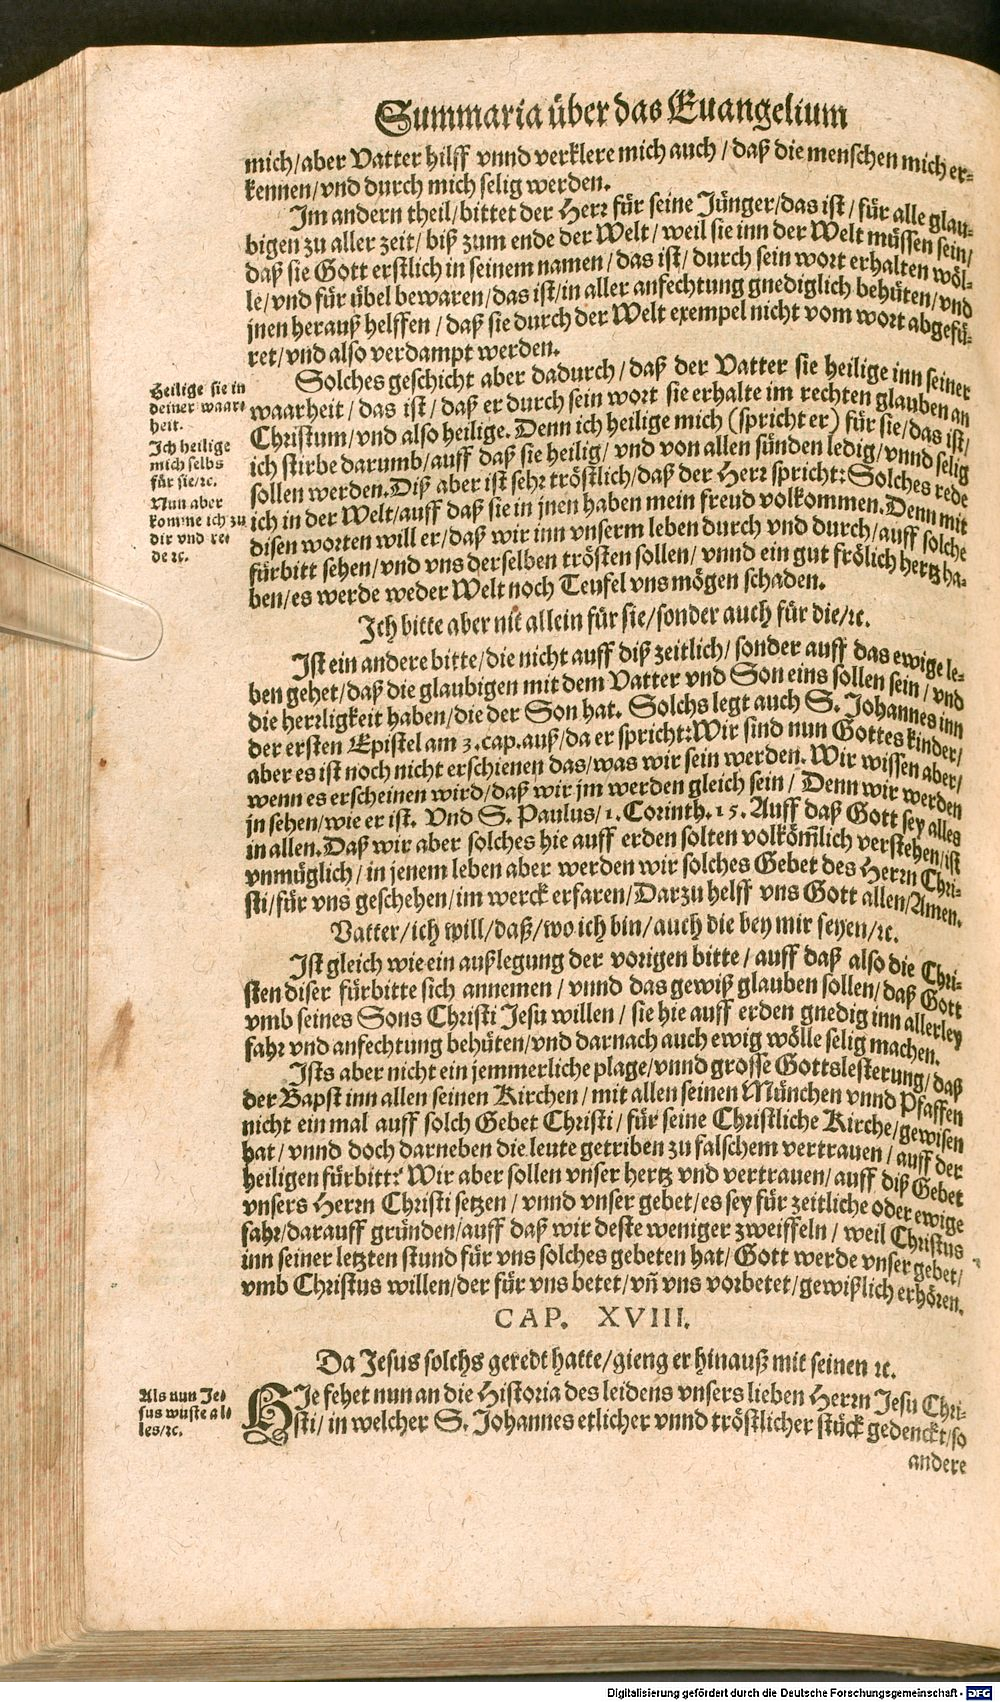 Summaria über das Euangelium
mich/aber Vatter hilff vnnd verklere mich auch/daß die menschen mich er-
kennen/vnd durch mich selig werden.
Im andern theil/bittet der Herr für seine Jünger/das ist/für alle glau-
bigen zu aller zeit/biß zum ende der Welt/weil sie inn der Welt müssen sein/
daß sie Gott erstlich in seinem namen/das ist/durch sein wort erhalten wöl-
le/vnd für übel bewaren/das ist/in aller anfechtung gnediglich behüten/vnd
jnen herauß helffen/daß sie durch der Welt exempel nicht vom wort abgefü-
ret/vnd also verdampt werden.
Solches geschicht aber dadurch/daß der Vatter sie heilige inn seiner
waarheit/das ist/daß er durch sein wort sie erhalte im rechten glauben an
Christum/vnd also heilige. Denn ich heilige mich (spricht er) für sie/das ist/
ich stirbe darumb/auff daß sie heilig/vnd von allen sünden ledig/vnnd selig
sollen werden. Diß aber ist sehr tröstlich/daß der Herr spricht: Solches rede
ich in der Welt/auff daß sie in jnen haben mein freud volkommen. Denn mit
disen worten will er/daß wir inn vnserm leben durch vnd durch/auff solche
fürbitt sehen/vnd vns derselben trösten sollen/vnnd ein gut frölich hertz ha-
ben/es werde weder Welt noch Teufel vns mögen schaden.
Heilige sie in
deiner waar-
heit.
Ich heilige
mich selbs
für sie/ꝛc.
Nun aber
komme ich zu
dir vnd re-
de ꝛc.
Ich bitte aber nit allein für sie/sonder auch für die/ꝛc.
Ist ein andere bitte/die nicht auff diß zeitlich/sonder auff das ewige le-
ben gehet/daß die glaubigen mit dem Vatter vnd Son eins sollen sein/vnd
die herrligkeit haben/die der Son hat. Solchs legt auch S. Johannes inn
der ersten Epistel am 3. cap. auß/da er spricht: Wir sind nun Gottes kinder/
aber es ist noch nicht erschienen das/was wir sein werden. Wir wissen aber/
wenn es erscheinen wird/daß wir jm werden gleich sein/Denn wir werden
jn sehen/wie er ist. Vnd S. Paulus/1. Corinth. 15. Auff daß Gott sey alles
in allen. Daß wir aber solches hie auff erden solten volköm̃lich verstehen/ist
vnmüglich/in jenem leben aber werden wir solches Gebet des Herrn Chri-
sti/für vns geschehen/im werck erfaren/Darzu helff vns Gott allen/Amen.
Vatter/ich will/daß/wo ich bin/auch die bey mir seyen/ꝛc.
Ist gleich wie ein außlegung der vorigen bitte/auff daß also die Chri-
sten diser fürbitte sich annemen/vnnd das gewiß glauben sollen/daß Gott
vmb seines Sons Christi Jesu willen/sie hie auff erden gnedig inn allerley
fahr vnd anfechtung behüten/vnd darnach auch ewig wölle selig machen.
Ists aber nicht ein jemmerliche plage/vnnd grosse Gottslesterung/daß
der Bapst inn allen seinen Kirchen/mit allen seinen München vnnd Pfaffen
nicht ein mal auff solch Gebet Christi/für seine Christliche Kirche/gewisen
hat/vnnd doch darneben die leute getriben zu falschem vertrauen/auff der
heiligen fürbitt? Wir aber sollen vnser hertz vnd vertrauen/auff diß Gebet
vnsers Herrn Christi setzen/vnnd vnser gebet/es sey für zeitliche oder ewige
fahr/darauff gründen/auff daß wir deste weniger zweiffeln/weil Christus
inn seiner letzten stund für vns solches gebeten hat/Gott werde vnser gebet/
vmb Christus willen/der für vns betet/vñ vns vorbetet/gewißlich erhören.
CAP. XVIII.
Da Jesus solchs geredt hatte/gieng er hinauß mit seinen ꝛc.
Als nun Je-
sus wuste al-
les/ꝛc.
HIe fehet nun an die Historia des leidens vnsers lieben Herrn Jesu Chri-
sti/in welcher S. Johannes etlicher vnnd tröstlicher stück gedenckt/so
andere
Digitalisierung gefördert durch die Deutsche Forschungsgemeinschaft - DFG